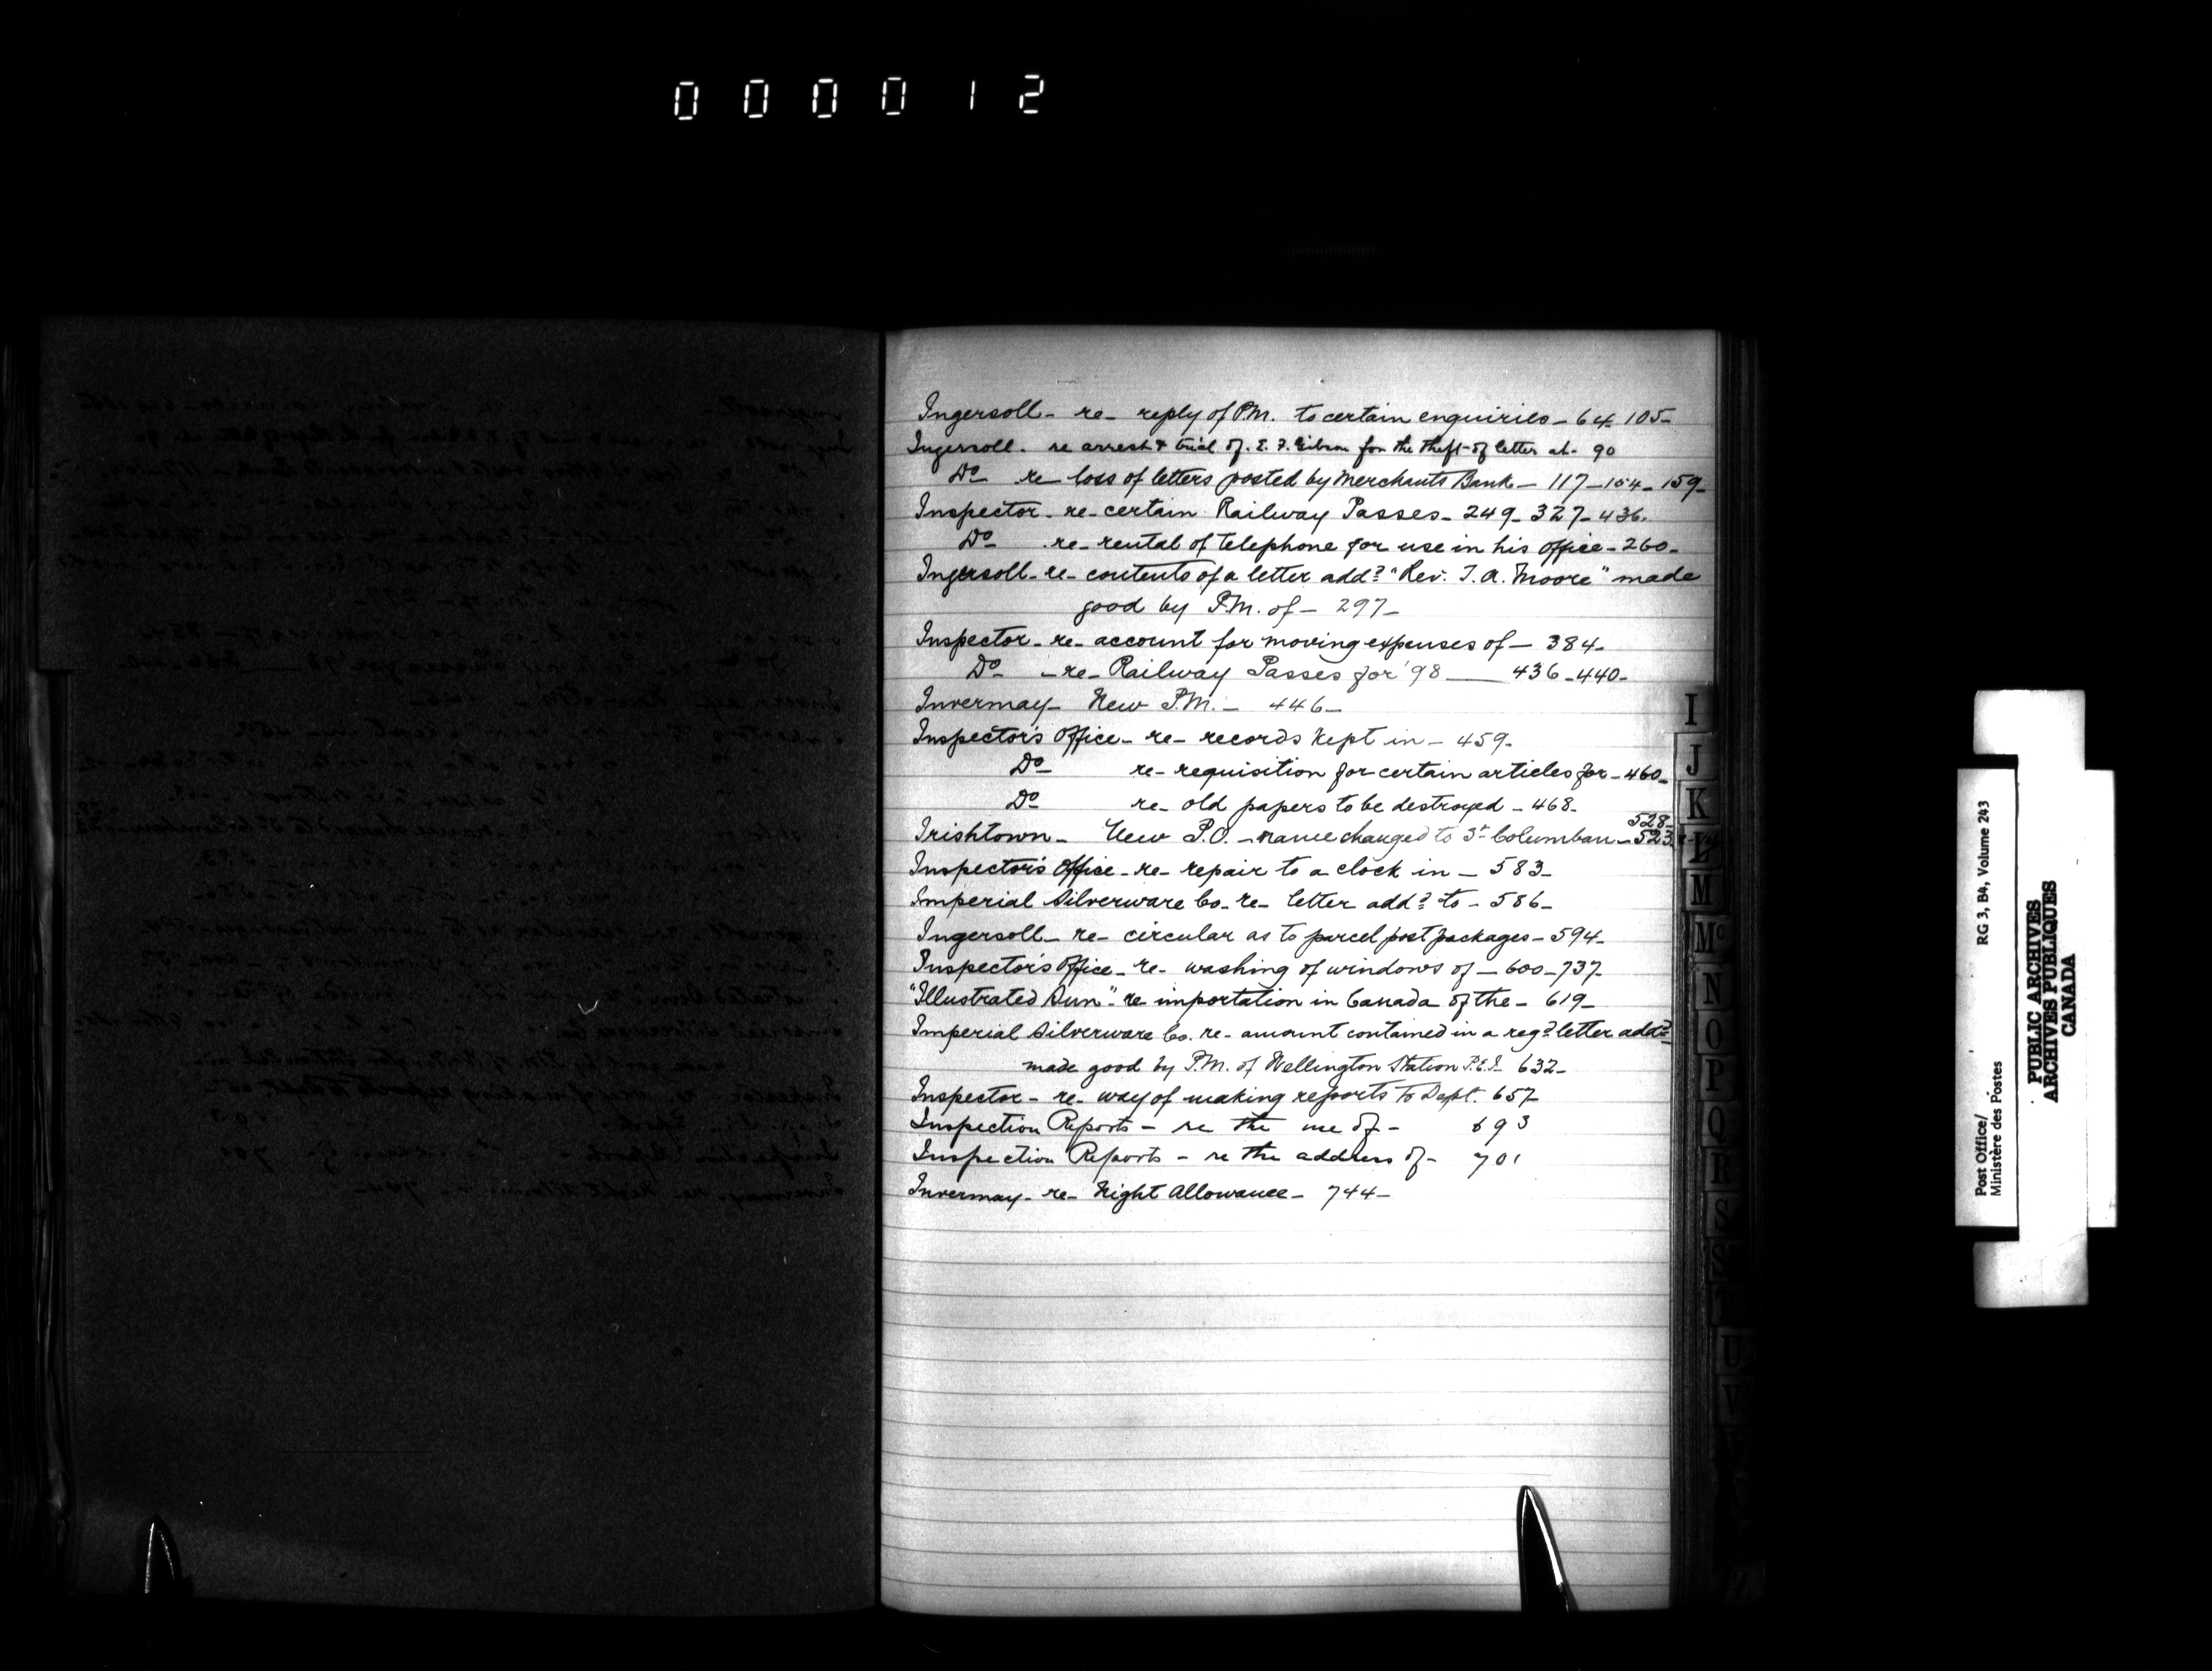 000012
Ingersoll - re - reply of P.M. to certain enquiries - 64 - 105 -
Ingersoll - re arrest & trial of E. F. Gibson for the theft of letter at - 90
Do re loss of letters posted by Merchants Bank - 117 - 154 - 159 -
Inspector - re - certain Railway Passes - 249 - 327 - 436 -
Do - re - rental of telephone for use in his office - 260 -
Ingersoll - re - contents of a letter addd "Rev. T. A. Moore" made
good by P.M. of - 297 -
Inspector - re - account for moving expenses of - 384 -
Do - re - Railway Passes for '98 - 436 - 440 -
Invermay - New P.M. - 446 -
Inspector's Office - re - records kept in - 459 -
Do re - requisition for certain articles for - 460 -
Do re - old papers to be destroyed - 468 -
528 -
Irishtown - New P.O. - name changed to St Columban - 523
Inspector's Office - re - repair to a clock in - 583 -
Imperial Silverware Co. re - letter addd to - 586 -
Ingersoll - re - circular as to parcel post packages - 594 -
Inspector's Office - re - washing of windows of - 600 - 737 -
"Illustrated Sun" - re importation in Canada of the - 619 -
Imperial Silverware Co. re - amount contained in a regd letter addd
made good by P.M. of Wellington Station P.E.I. 632 -
Inspector - re - way of making reports to Dept. 657 -
Inspection Reports - re the use of - 693
Inspection Reports - re the address of - 701
Invermay - re - Night Allowance - 744 -
I
J
K
L
M
Mc
N
O
P
Q
R
S
U
V
Z
Post Office/
Ministère des Postes
RG 3, B4, Volume 243
PUBLIC ARCHIVES
ARCHIVES PUBLIQUES
CANADA